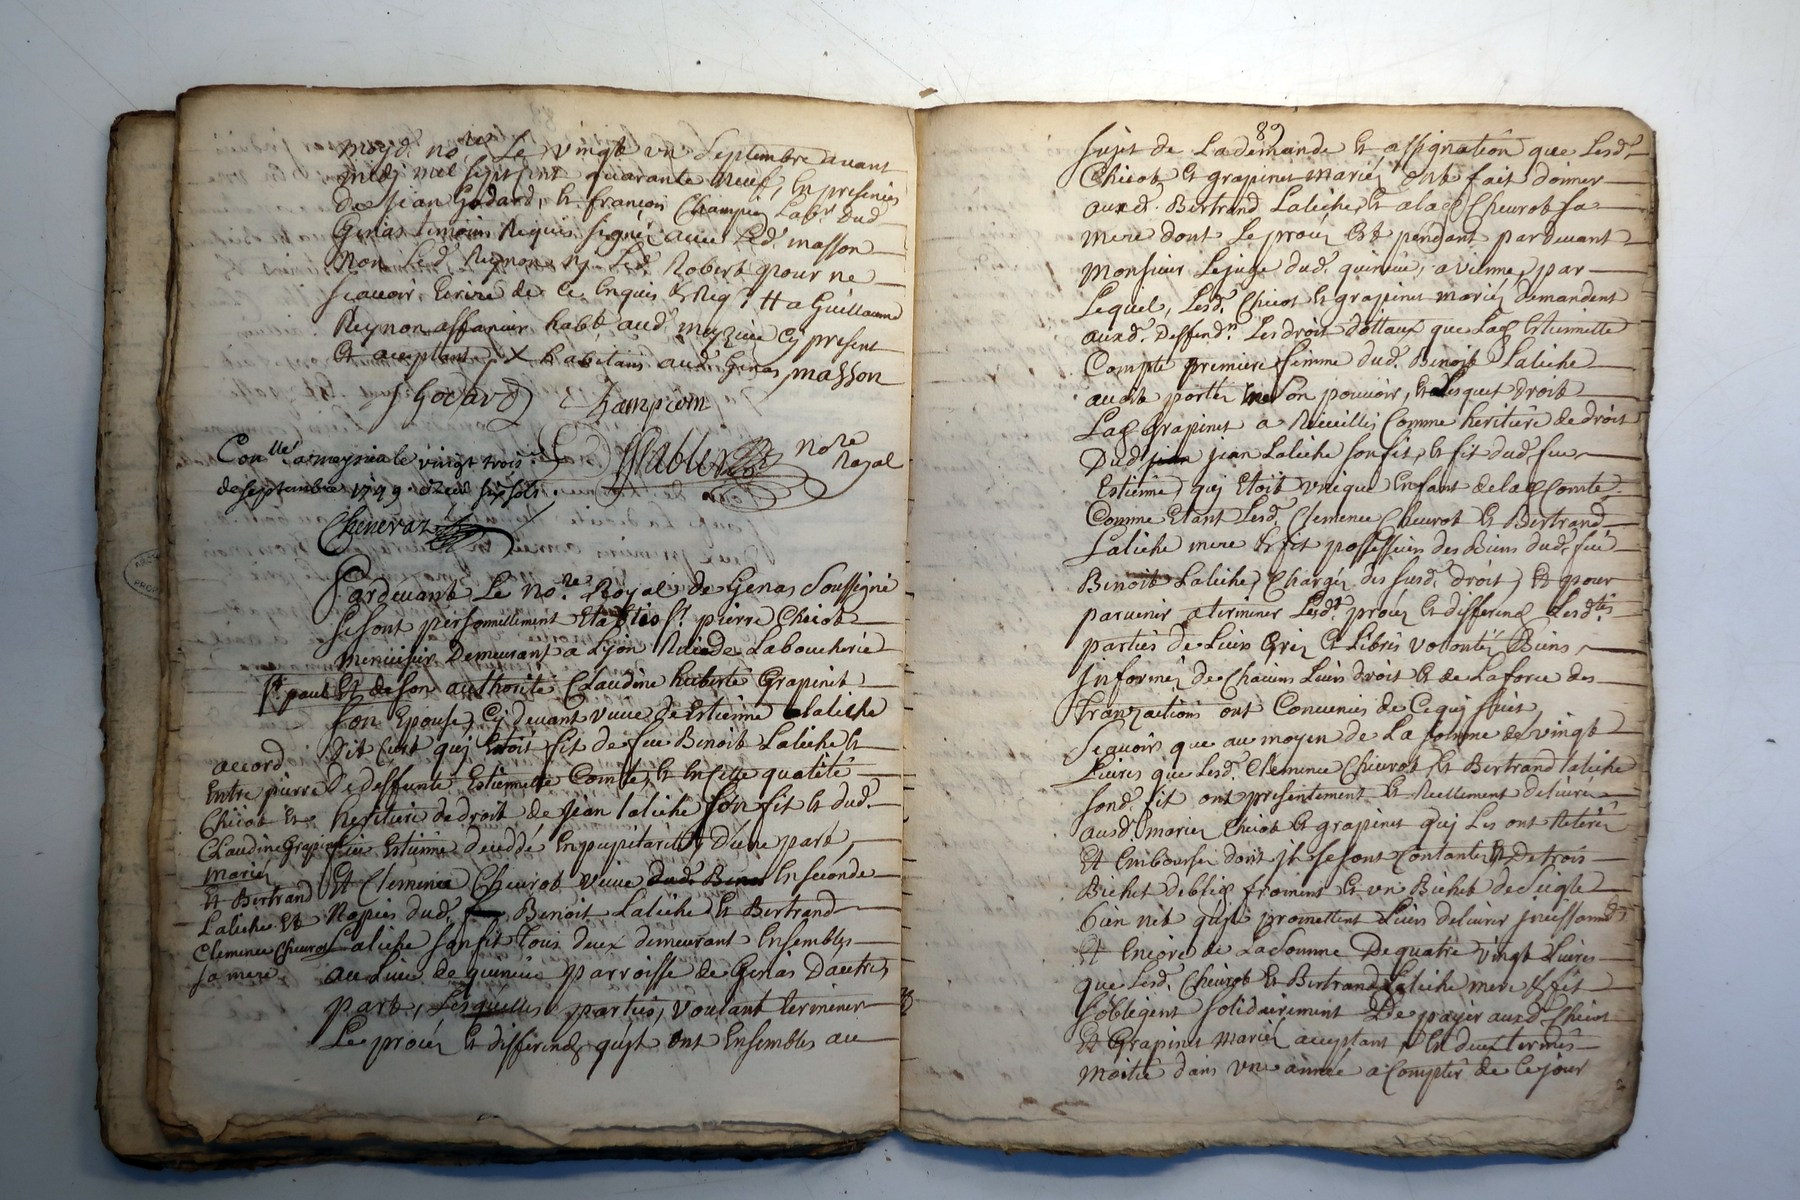 moyd. no.res Le vingt vn Septembre auant
midy mil sept cent quarante neuf, En presences
De Jean Godard, & françois Champion Labr. Dud.
Genas temoins Requis signés auec Led. masson
Non Led. Reynon Ny Led. Robert pour ne
scauoir Ecrire de Ce Enquis & Req. # a Guillaume
Reynon affaneur habt. aud. meyzieu Cy present
Et acceptant, X habitans aud. Genas masson
J Godard Champion
Conllé a meyzieu le vingt trois
de septembre 1749 Reçu six sols
Chenevaz
nore Royal
Pardeuant Le nore. Royal de Genas Soussigné
se sont personnellement Etablis sr. pierre Chicot
menuisier Demeurant a Lyon Rüe de Laboucherie
st. paul Et de son authorité Claudine huberte Grapinet
son Epouse, Cy deuant vuue de Estienne Laliche
dit Curt quj Etoit fit de feu Benoit Laliche &
De deffunte Estiennette Comte, & En cette qualité
heritiere de droit de Jean laliche son fit & dud.
feu Estienne decedé En pupilarité, D'une part,
Et Clemence Cheurot vuue En seconde
Nopces dud. Benoit Laliche & Bertrand
Laliche son fit Tous deux demeurant Ensembles
au Lieu de quincieu parroisse de Genas D'autres
part, Lesquelles parties, voulant terminer
Le procès & differend qu'jl ont Ensembles au
accord
Entre pierre
Chicot &
Claudine Grapinet
mariés
& Bertrand
Laliche et
Clemence Cheurot
sa mere
89
sujet de La demande & assignation que Lesd.
Chicot & grapinet mariés ont fait donner
auxd. Bertrand Laliche, & a lad. Cheurot sa
mere dont Le procès Est pendant par deuant
Monsieur Lejuge dud. quincieu, a vienne, par
Lequel, Lesd. Chicot & grapinet mariés demandent
auxd. Deffendrs. Les droit dottaux que Lad. Estiennette
Compte premiere femme dud. Benoit Laliche
auoit porté En son pouuoir, & Lesquel droit
Lad. Grapinet a Recueillis Comme heritiere de droit
Dud. jean Laliche son fit, & fit dud. feu
Estienne, quj Etoit vnique Enfant de lad. Comte
Comme Etant Lesd. Clemence Cheurot & Bertrand
Laliche mere & fit possesseurs des Biens dud. feu
Benoit Laliche, Chargés des susd. droit, & pour
paruenir a terminer Lesdt. procès & differend Lesdtes.
parties de Leurs Grés & Libres volontés Biens
jnformés de Chacuns Leurs droit & de La force des
tranzactions ont Conuenües de Ce quj suit,
Scauoir que au moyen de La somme de vingt
Liures que Lesd. Clemence Cheurot & Bertrand laliche
sond. fit ont presentement & Reellement deliurés
auxd. mariés Chicot & grapinet quj Les ont Retirés
Et Emboursés dont jls se sont Contantés, & De trois
Bichet de bled froment & vn Bichet de Seigle
bien net qu'jls promettent Leurs deliurer jncessamt.
Et Encore de La Somme De quatre vingt Liures
que Lesd. Cheurot & Bertrand Laliche mere & fit
s'obligent solidairement De payer auxd. Chicot
Et Grapinet mariés acceptant, En deux termes
moitié dans vne année a Compter de Ce jour